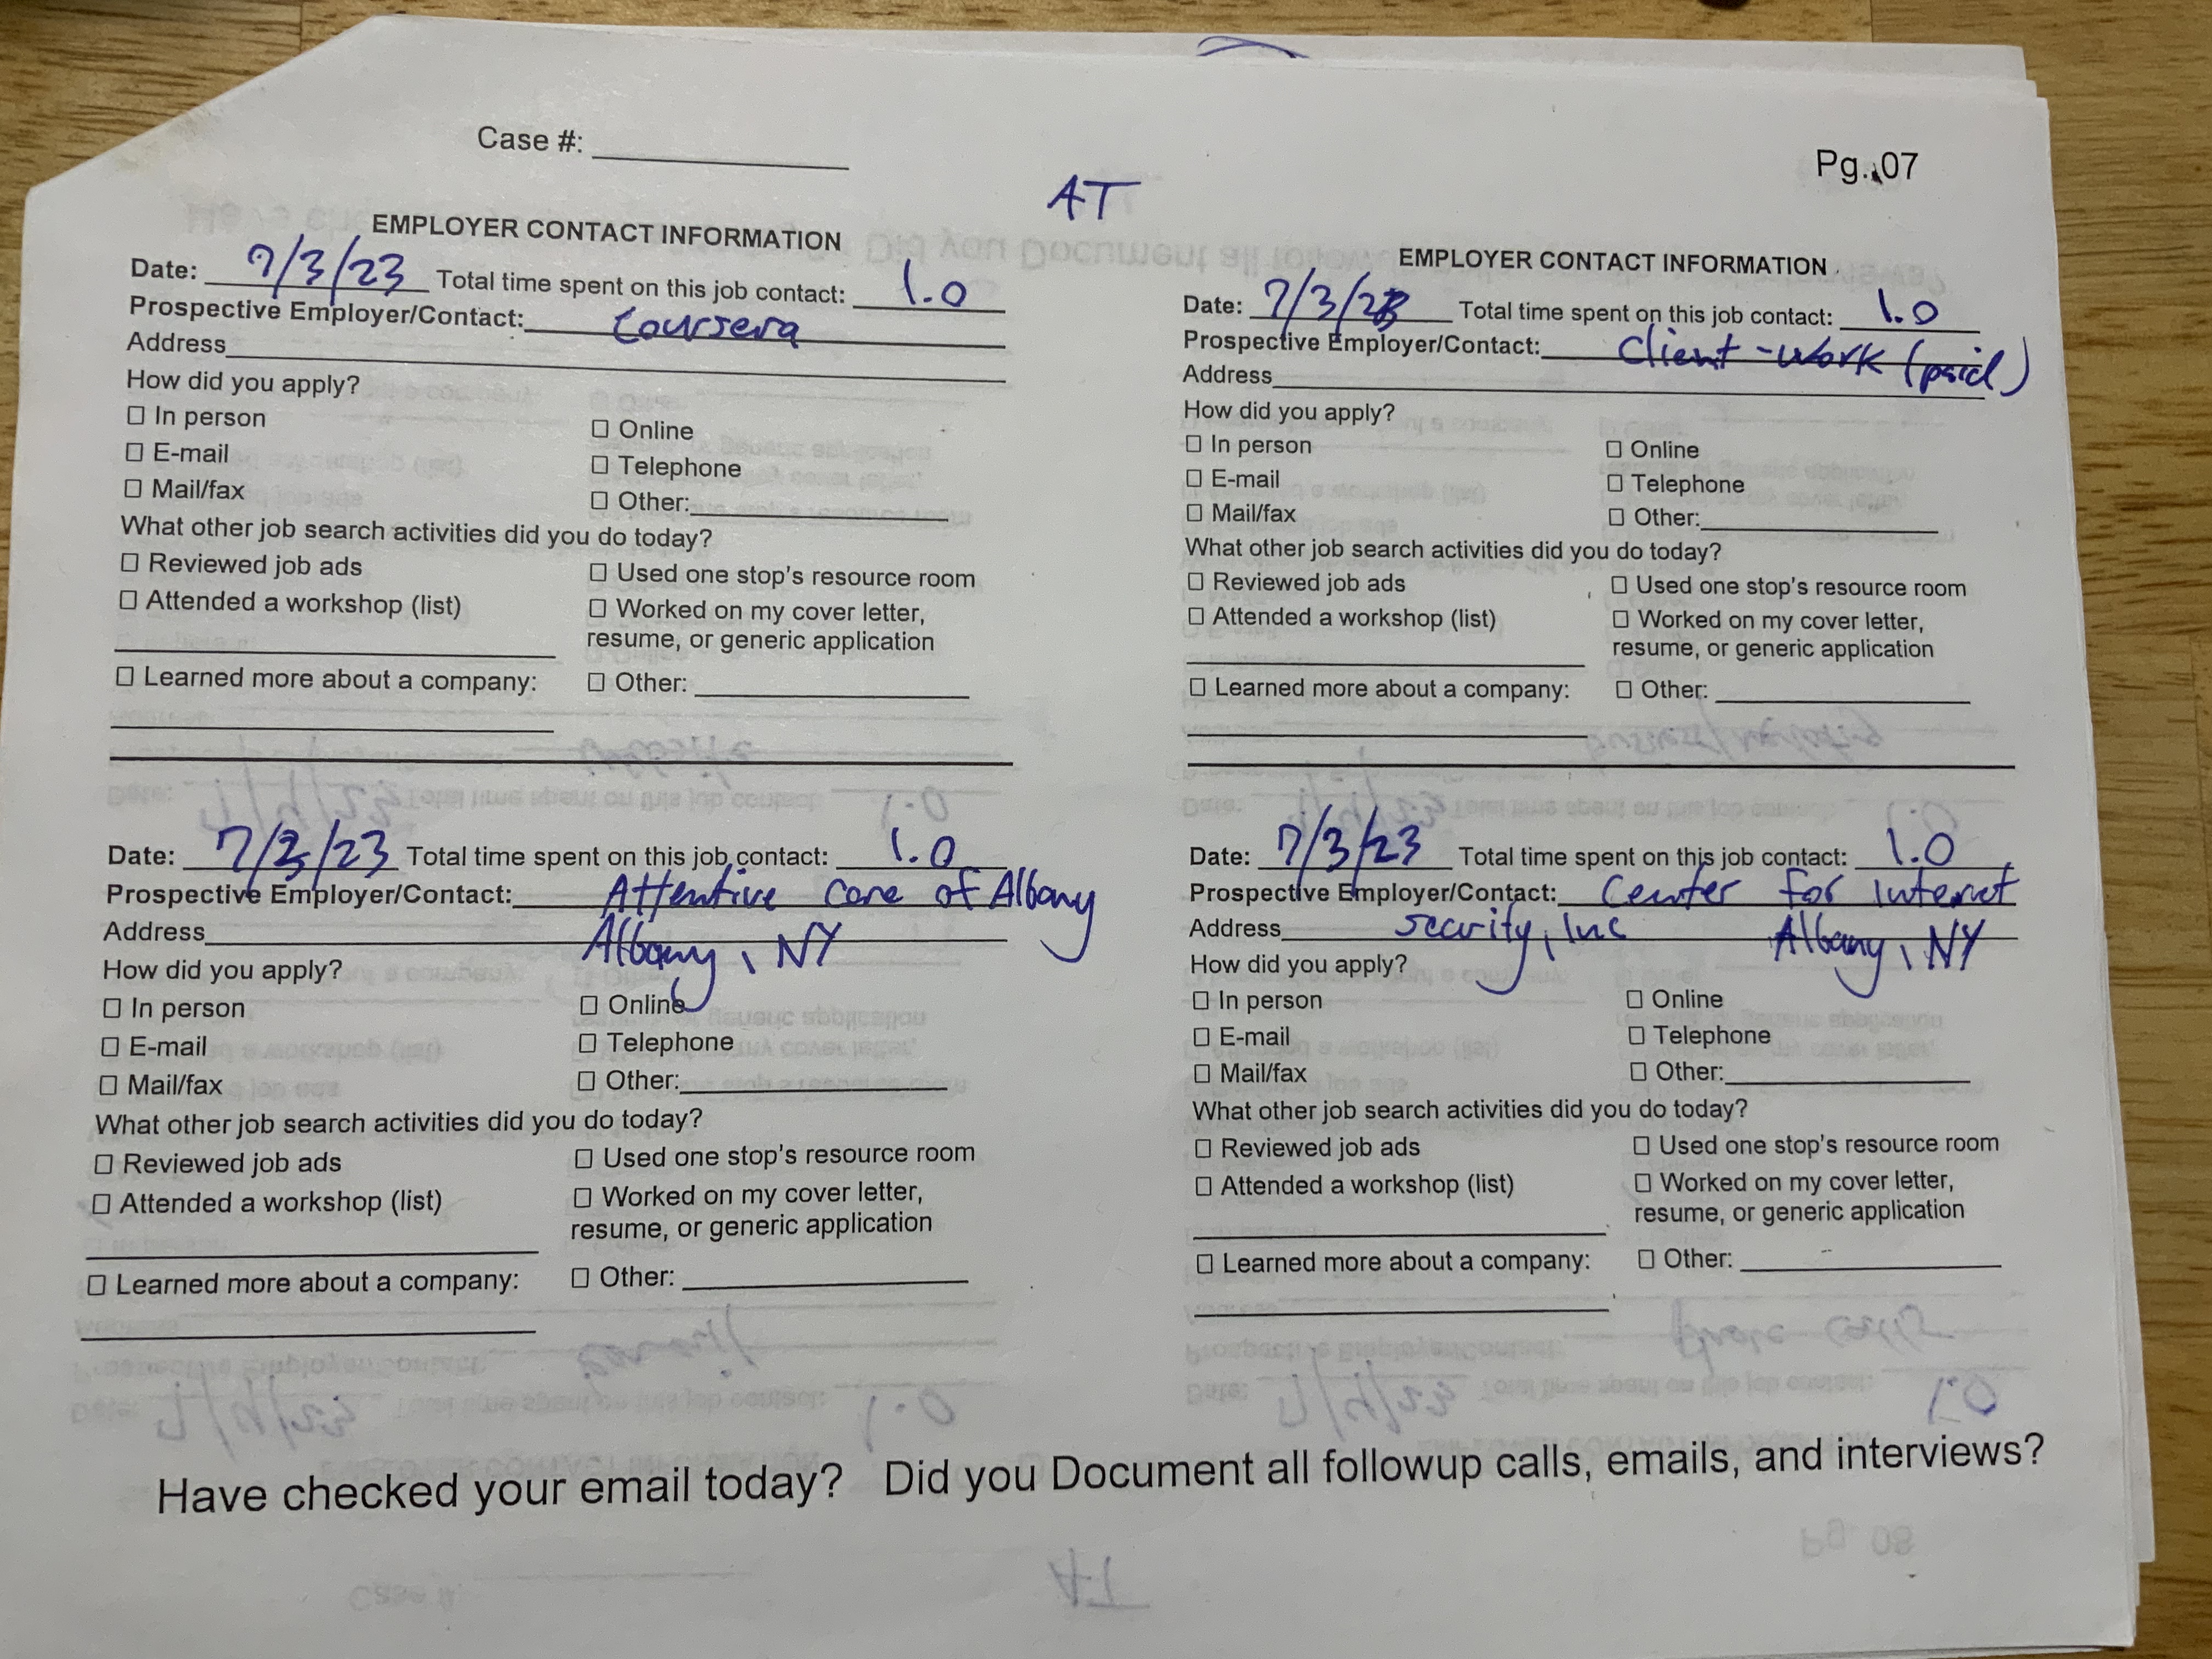 Case #:
Pg. 07
AT
EMPLOYER CONTACT INFORMATION
Date: 7/3/23 Total time spent on this job contact: 1.0
Prospective Employer/Contact: Coursera
Address
How did you apply?
☐ In person ☐ Online
☐ E-mail ☐ Telephone
☐ Mail/fax ☐ Other:
What other job search activities did you do today?
☐ Reviewed job ads ☐ Used one stop's resource room
☐ Attended a workshop (list) ☐ Worked on my cover letter,
resume, or generic application
☐ Learned more about a company: ☐ Other:
EMPLOYER CONTACT INFORMATION
Date: 7/3/23 Total time spent on this job contact: 1.0
Prospective Employer/Contact: client-work (paid)
Address
How did you apply?
☐ In person ☐ Online
☐ E-mail ☐ Telephone
☐ Mail/fax ☐ Other:
What other job search activities did you do today?
☐ Reviewed job ads ☐ Used one stop's resource room
☐ Attended a workshop (list) ☐ Worked on my cover letter,
resume, or generic application
☐ Learned more about a company: ☐ Other:
Date: 7/3/23 Total time spent on this job contact: 1.0
Prospective Employer/Contact: Attentive Care of Albany
Address Albany, NY
How did you apply?
☐ In person ☐ Online
☐ E-mail ☐ Telephone
☐ Mail/fax ☐ Other:
What other job search activities did you do today?
☐ Reviewed job ads ☐ Used one stop's resource room
☐ Attended a workshop (list) ☐ Worked on my cover letter,
resume, or generic application
☐ Learned more about a company: ☐ Other:
Date: 7/3/23 Total time spent on this job contact: 1.0
Prospective Employer/Contact: Center for Internet
Address security, Inc Albany, NY
How did you apply?
☐ In person ☐ Online
☐ E-mail ☐ Telephone
☐ Mail/fax ☐ Other:
What other job search activities did you do today?
☐ Reviewed job ads ☐ Used one stop's resource room
☐ Attended a workshop (list) ☐ Worked on my cover letter,
resume, or generic application
☐ Learned more about a company: ☐ Other:
Have checked your email today? Did you Document all followup calls, emails, and interviews?